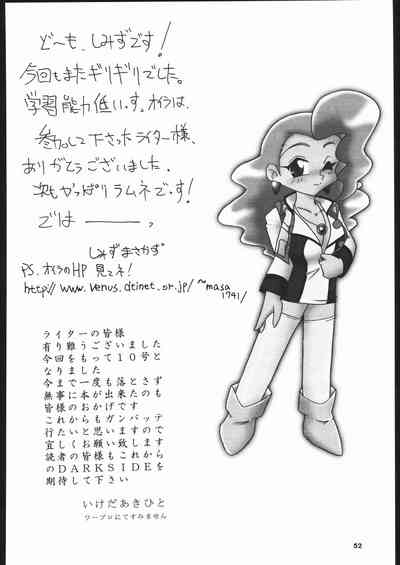 ど〜も、しみずです!
今回もまたギリギリでした。
学習能力低いっす。オイラは、
参加して下さったライター様、
ありがとうございました。
次もやっぱりラムネです!
では———。
しみずまさかず
PS. オイラのHP 見てネ!
http://www.venus.dtinet.or.jp/~masa
1741/
ライターの皆様
有り難うございました
今回をもって10号と
なりました
今まで一度も落とさず
無事に本が出来たのも
皆様のおかげです
これからもガンバッテ
行たいと思いますので
宜しくお願い致します
読者の皆様もこれから
のDARKSIDEを
期待して下さい
いけだあきひと
ワープロにてすみません
52